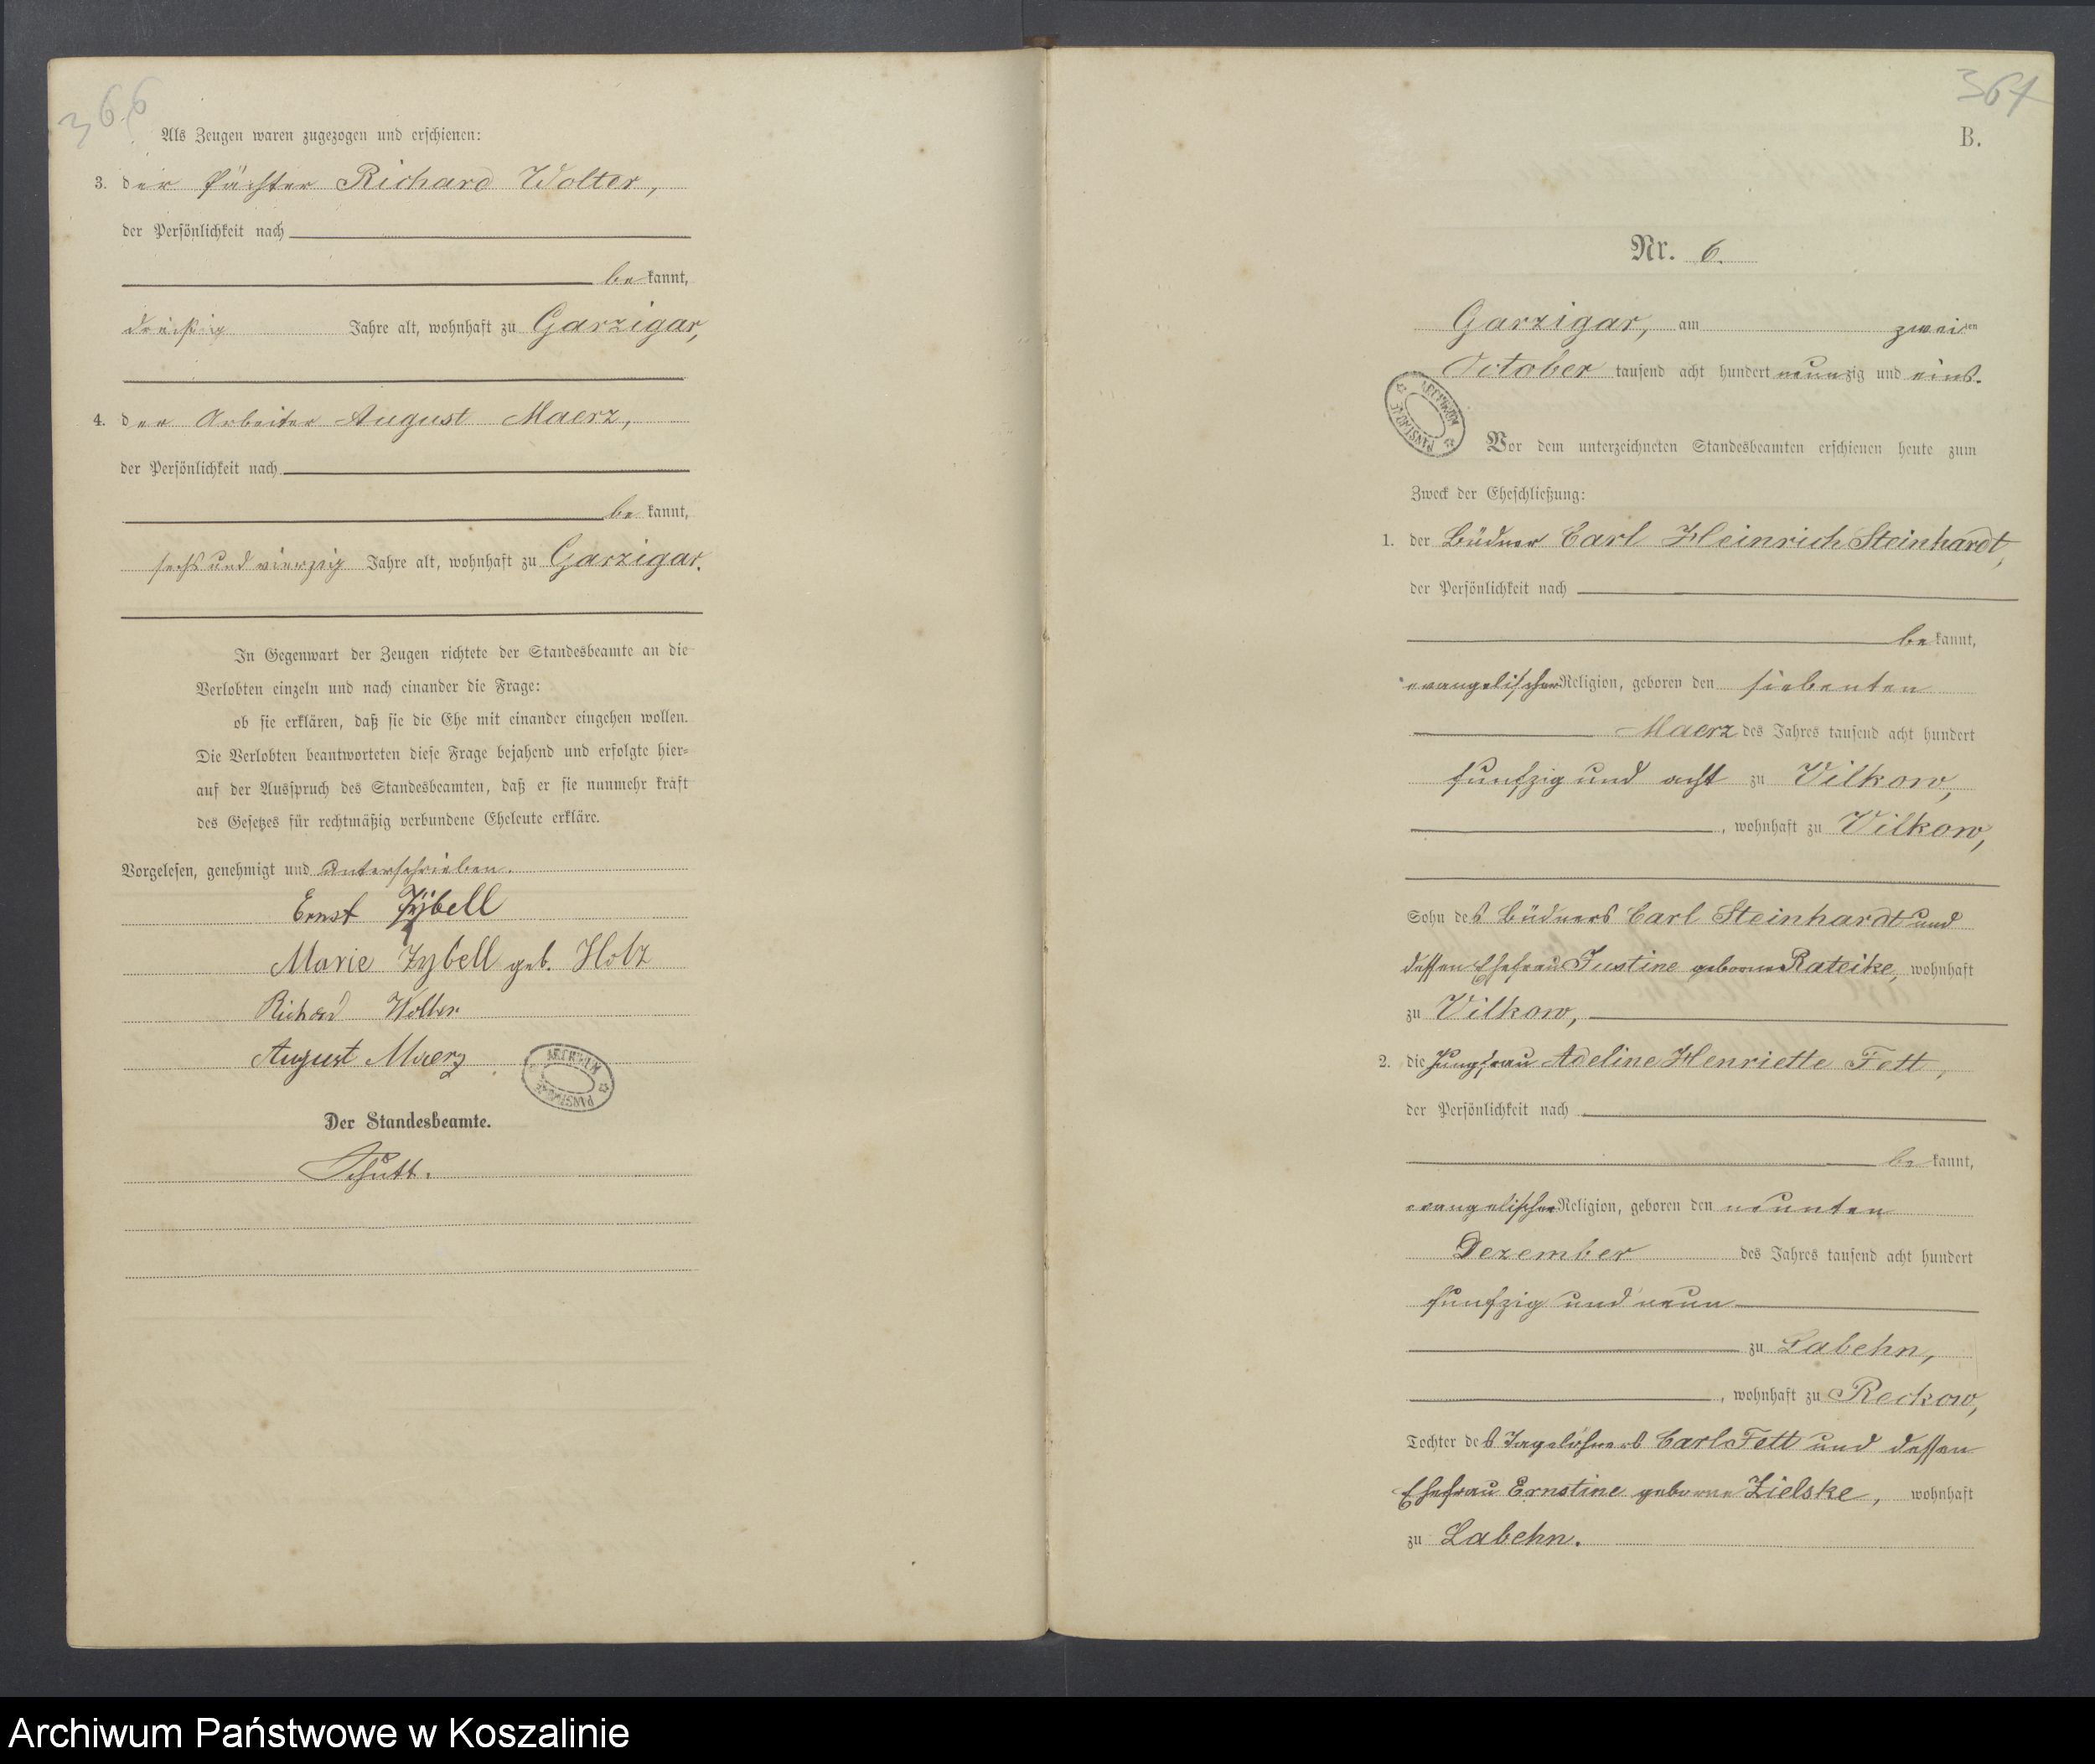 366
Als Zeugen waren zugezogen und erschienen:
3. der Pächter Richard Wolter,
der Persönlichkeit nach
be kannt,
dreißig Jahre alt, wohnhaft zu Garzigar,
4. der Arbeiter August Maerz,
der Persönlichkeit nach
be kannt,
sechs und vierzig Jahre alt, wohnhaft zu Garzigar.
In Gegenwart der Zeugen richtete der Standesbeamte an die
Verlobten einzeln und nach einander die Frage:
ob sie erklären, daß sie die Ehe mit einander eingehen wollen.
Die Verlobten beantworteten diese Frage bejahend und erfolgte hier-
auf der Ausspruch des Standesbeamten, daß er sie nunmehr kraft
des Gesetzes für rechtmäßig verbundene Eheleute erkläre.
Vorgelesen, genehmigt und unterschrieben.
Ernst Zybell
Marie Zybell geb. Holz
Richard Wolter
August Maerz
ARCHIWUM PAŃSTWOWE
Der Standesbeamte.
Schutt.
367
B.
Nr. 6.
Garzigar, am zweiten
October tausend acht hundert neunzig und eins.
ARCHIWUM PAŃSTWOWE
Vor dem unterzeichneten Standesbeamten erschienen heute zum
Zweck der Eheschließung:
1. der Büdner Carl Heinrich Steinhardt,
der Persönlichkeit nach
be kannt,
evangelischer Religion, geboren den siebenten
Maerz des Jahres tausend acht hundert
funfzig und acht zu Vilkow,
, wohnhaft zu Vilkow,
Sohn des Büdners Carl Steinhardt und
dessen Ehefrau Justine geborne Rateike, wohnhaft
zu Vilkow,
2. die Jungfrau Adeline Henriette Fett,
der Persönlichkeit nach
be kannt,
evangelischer Religion, geboren den neunten
Dezember des Jahres tausend acht hundert
funfzig und neun
zu Labehn,
, wohnhaft zu Reckow,
Tochter des Tagelöhners Carl Fett und dessen
Ehefrau Ernstine geborne Zielske, wohnhaft
zu Labehn.
Archiwum Państwowe w Koszalinie